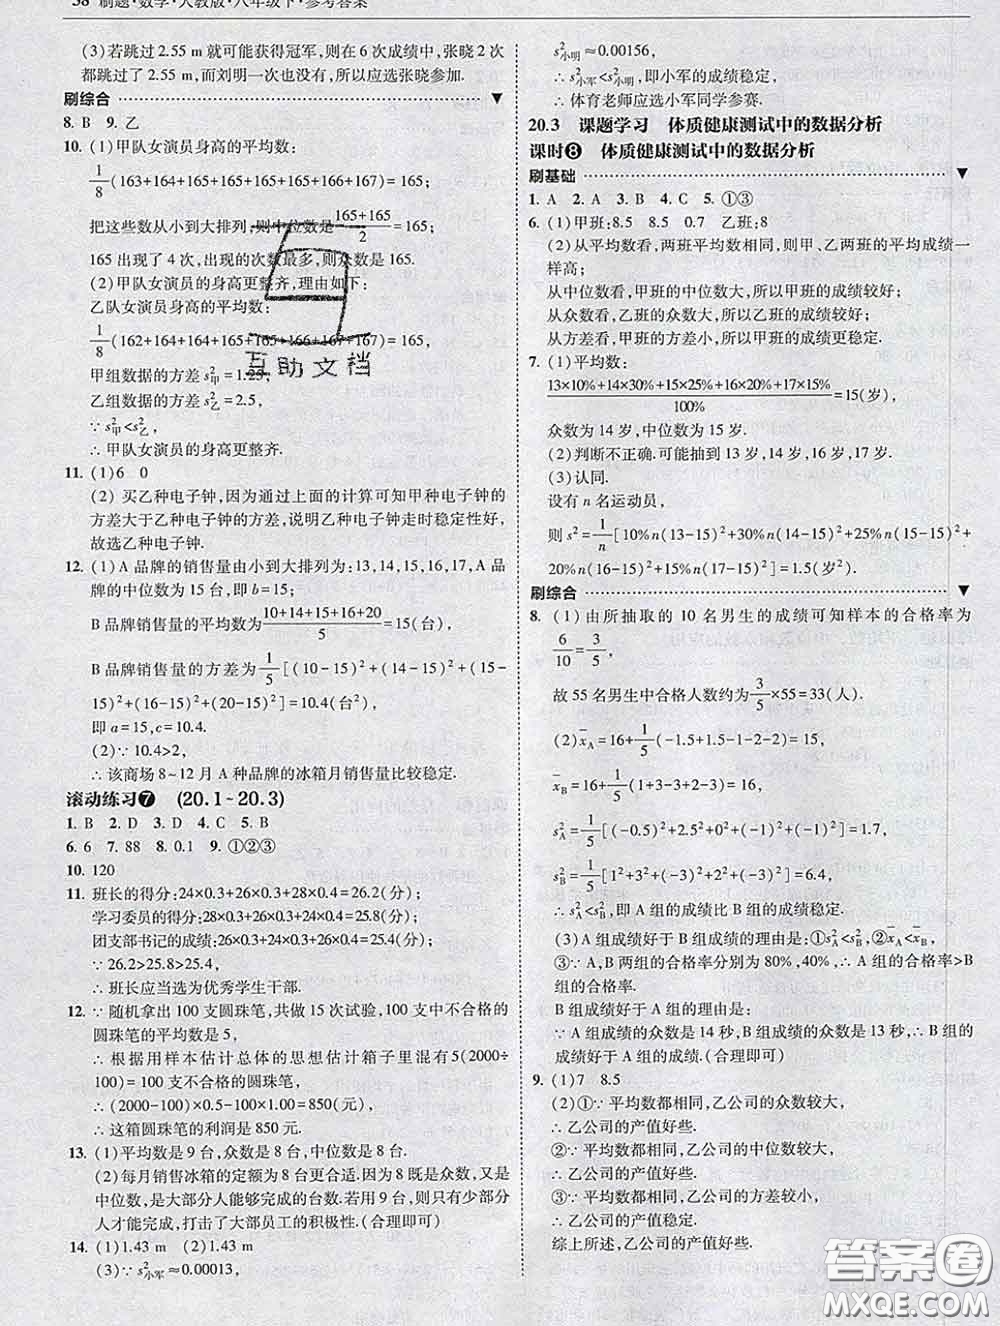 38 刷题·数学·人教版·八年级下·参考答案
(3)若跳过2.55 m就可能获得冠军,则在6次成绩中,张晓2次
都跳过了2.55 m,而刘明一次也没有,所以应选张晓参加.
刷综合
8. B 9. 乙
10. (1)甲队女演员身高的平均数:
1/8(163+164+164+165+165+165+165+166+166+167)=165;
把这些数从小到大排列,则中位数是(165+165)/2=165;
165出现了4次,出现的次数最多,则众数是165.
(2)甲队女演员的身高更整齐,理由如下:
乙队女演员身高的平均数:
甲组数据的方差s²甲=1.25;
乙组数据的方差s²乙=2.5,
∵s²甲<s²乙,
∴甲队女演员的身高更整齐.
11. (1)6 0
(2)买乙种电子钟,因为通过上面的计算可知甲种电子钟的
方差大于乙种电子钟的方差,说明乙种电子钟走时稳定性好,
故选乙种电子钟.
12. (1)A品牌的销售量由小到大排列为:13,14,15,16,17,A品
牌的中位数为15台,即b=15;
B品牌销售量的平均数为(10+14+15+16+20)/5=15(台),
B品牌销售量的方差为1/5[(10-15)²+(14-15)²+(15-
15)²+(16-15)²+(20-15)²]=10.4(台²),
即a=15,c=10.4.
(2)∵10.4>2,
∴该商场8~12月A种品牌的冰箱月销售量比较稳定.
滚动练习❼ (20.1~20.3)
1. B 2. D 3. D 4. C 5. B
6. 6 7. 88 8. 0.1 9. ①②③
10. 120
11. 班长的得分:24×0.3+26×0.3+28×0.4=26.2(分);
学习委员的得分:28×0.3+26×0.3+24×0.4=25.8(分);
团支部书记的成绩:26×0.3+24×0.3+26×0.4=25.4(分);
∵26.2>25.8>25.4,
∴班长应当选为优秀学生干部.
12. ∵随机拿出100支圆珠笔,共做15次试验,100支中不合格的
圆珠笔的平均数是5,
∴根据用样本估计总体的思想估计箱子里混有5(2000÷
100)=100支不合格的圆珠笔,
∴(2000-100)×0.5-100×1.00=850(元),
∴这箱圆珠笔的利润是850元.
13. (1)平均数是9台,众数是8台,中位数是8台.
(2)每月销售冰箱的定额为8台更合适.因为8既是众数,又是
中位数,是大部分人能够完成的台数.若用9台,则只有少部分
人才能完成,打击了大部员工的积极性.(合理即可)
14. (1)1.43 m (2)1.43 m
(3)∵s²小军≈0.00013,
s²小明≈0.00156,
∴s²小军<s²小明,即小军的成绩稳定,
∴体育老师应选小军同学参赛.
20.3 课题学习 体质健康测试中的数据分析
课时❽ 体质健康测试中的数据分析
刷基础
1. A 2. A 3. B 4. C 5. ①③
6. (1)甲班:8.5 8.5 0.7 乙班:8
(2)从平均数看,两班平均数相同,则甲、乙两班的平均成绩一
样高;
从中位数看,甲班的中位数大,所以甲班的成绩较好;
从众数看,乙班的众数大,所以乙班的成绩较好;
从方差看,甲班的方差小,所以甲班的成绩更稳定.
7. (1)平均数:
(13×10%+14×30%+15×25%+16×20%+17×15%)/100%=15(岁),
众数为14岁,中位数为15岁.
(2)判断不正确.可能抽到13岁,14岁,16岁,17岁.
(3)认同.
设有n名运动员,
则s²=1/n[10%n(13-15)²+30%n(14-15)²+25%n(15-15)²+
20%n(16-15)²+15%n(17-15)²]=1.5(岁²).
刷综合
8. (1)由所抽取的10名男生的成绩可知样本的合格率为
6/10=3/5,
故55名男生中合格人数约为3/5×55=33(人).
(2)x̄A=16+1/5(-1.5+1.5-1-2-2)=15,
s²A=1/5[(-0.5)²+2.5²+0²+(-1)²+(-1)²]=1.7,
s²B=1/5[1²+3²+(-3)²+2²+(-3)²]=6.4,
∴s²A<s²B,即A组的成绩比B组的成绩稳定.
(3)A组成绩好于B组成绩的理由是:①s²A<s²B,②x̄A<x̄B,
③∵A、B两组的合格率分别为80%,40%,∴A组的合格率>B
组的合格率.
B组成绩好于A组的理由是:
∵A组成绩的众数是14秒,B组成绩的众数是13秒,∴B组的
成绩好于A组的成绩.(合理即可)
9. (1)7 8.5
(2)①∵平均数都相同,乙公司的众数较大,
∴乙公司的产值好些.
②∵平均数都相同,乙公司的中位数较大,
∴乙公司的产值好些.
③∵平均数都相同,乙公司的方差较小,
∴乙公司的产值稳定.
综上所述,乙公司的产值好些.
互助文档
答案圈
MXQE.COM